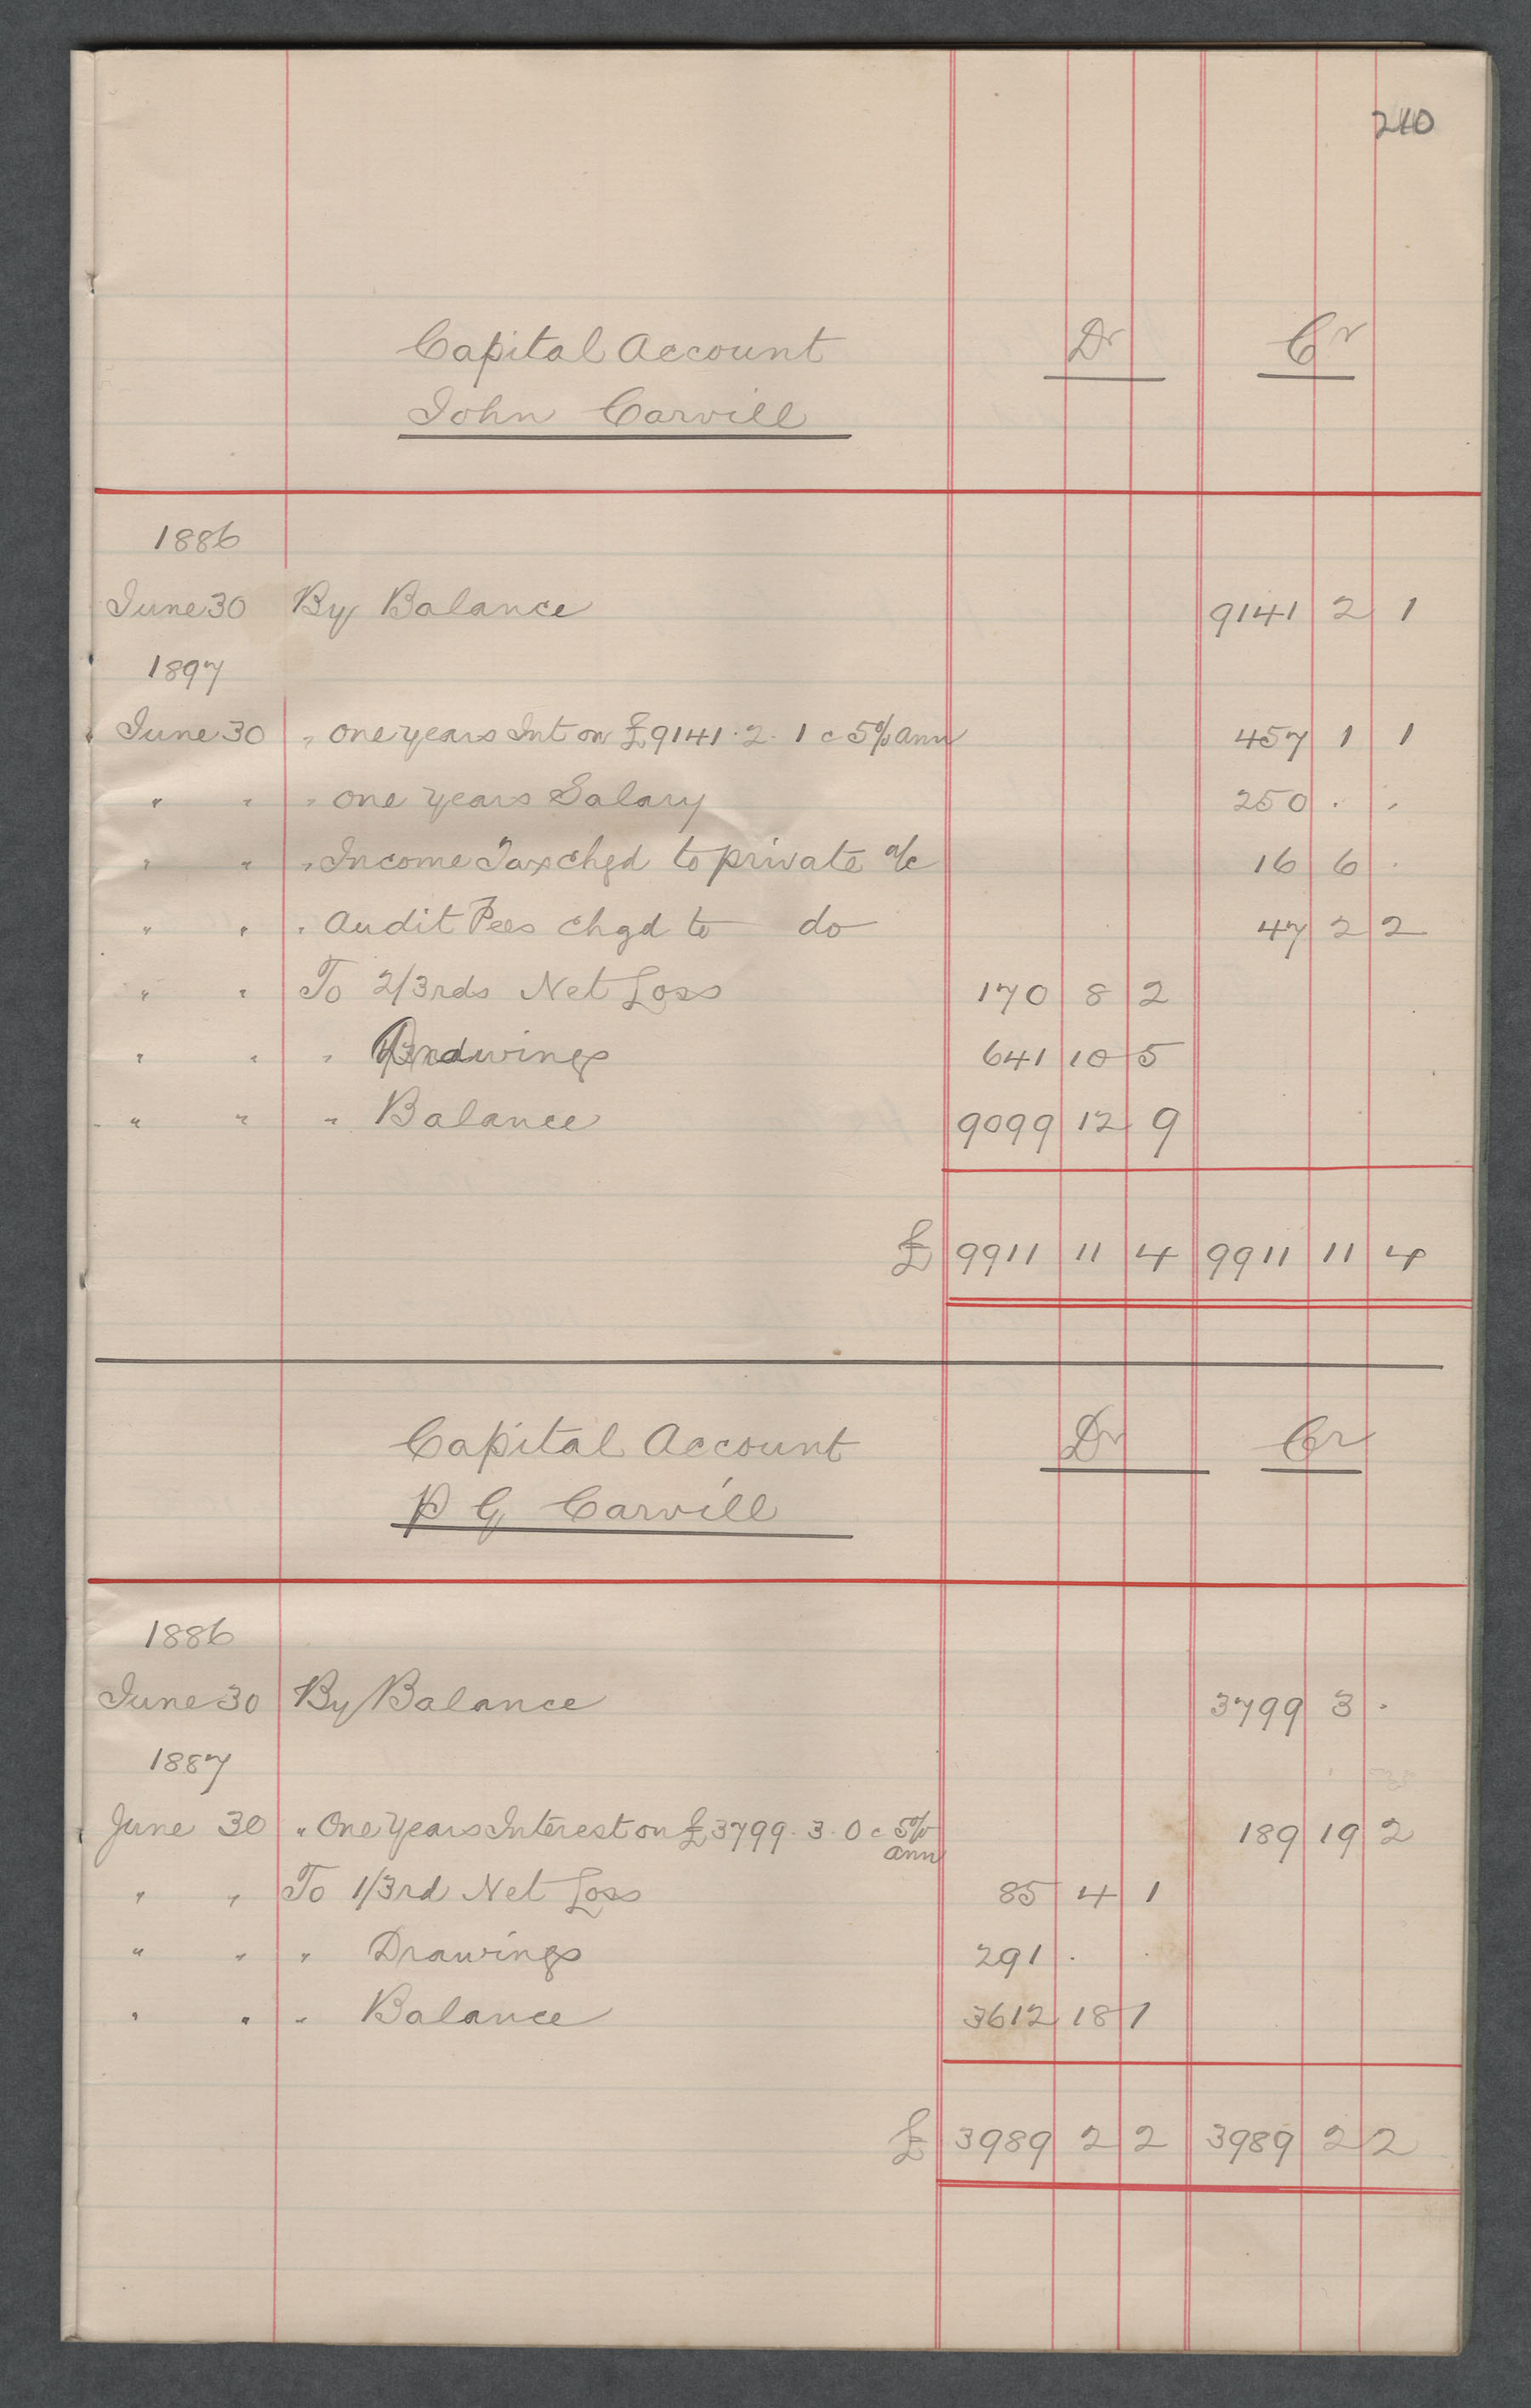 210
Capital Account Dr Cr
John Carvill
1886
June 30 By Balance 9141 2 1
1897
June 30 " One years Int on £9141. 2. 1 @ 5% ann 457 1 1
" " " one years Salary 250 . .
" " " Income Tax chgd to private a/c 16 6 .
" " " Audit Fees chgd to do 47 2 2
" " To 2/3rds Net Loss 170 8 2
" " " Drawings 641 10 5
" " " Balance 9099 12 9
£ 9911 11 4 9911 11 4
Capital Account Dr Cr
P G Carvill
1886
June 30 By Balance 3799 3 .
1887
June 30 " One Years Interest on £3799. 3. 0 @ 5% 189 19 2
ann
" " To 1/3rd Net Loss 85 4 1
" " " Drawings 291 . .
" " " Balance 3612 18 1
£ 3989 2 2 3989 2 2